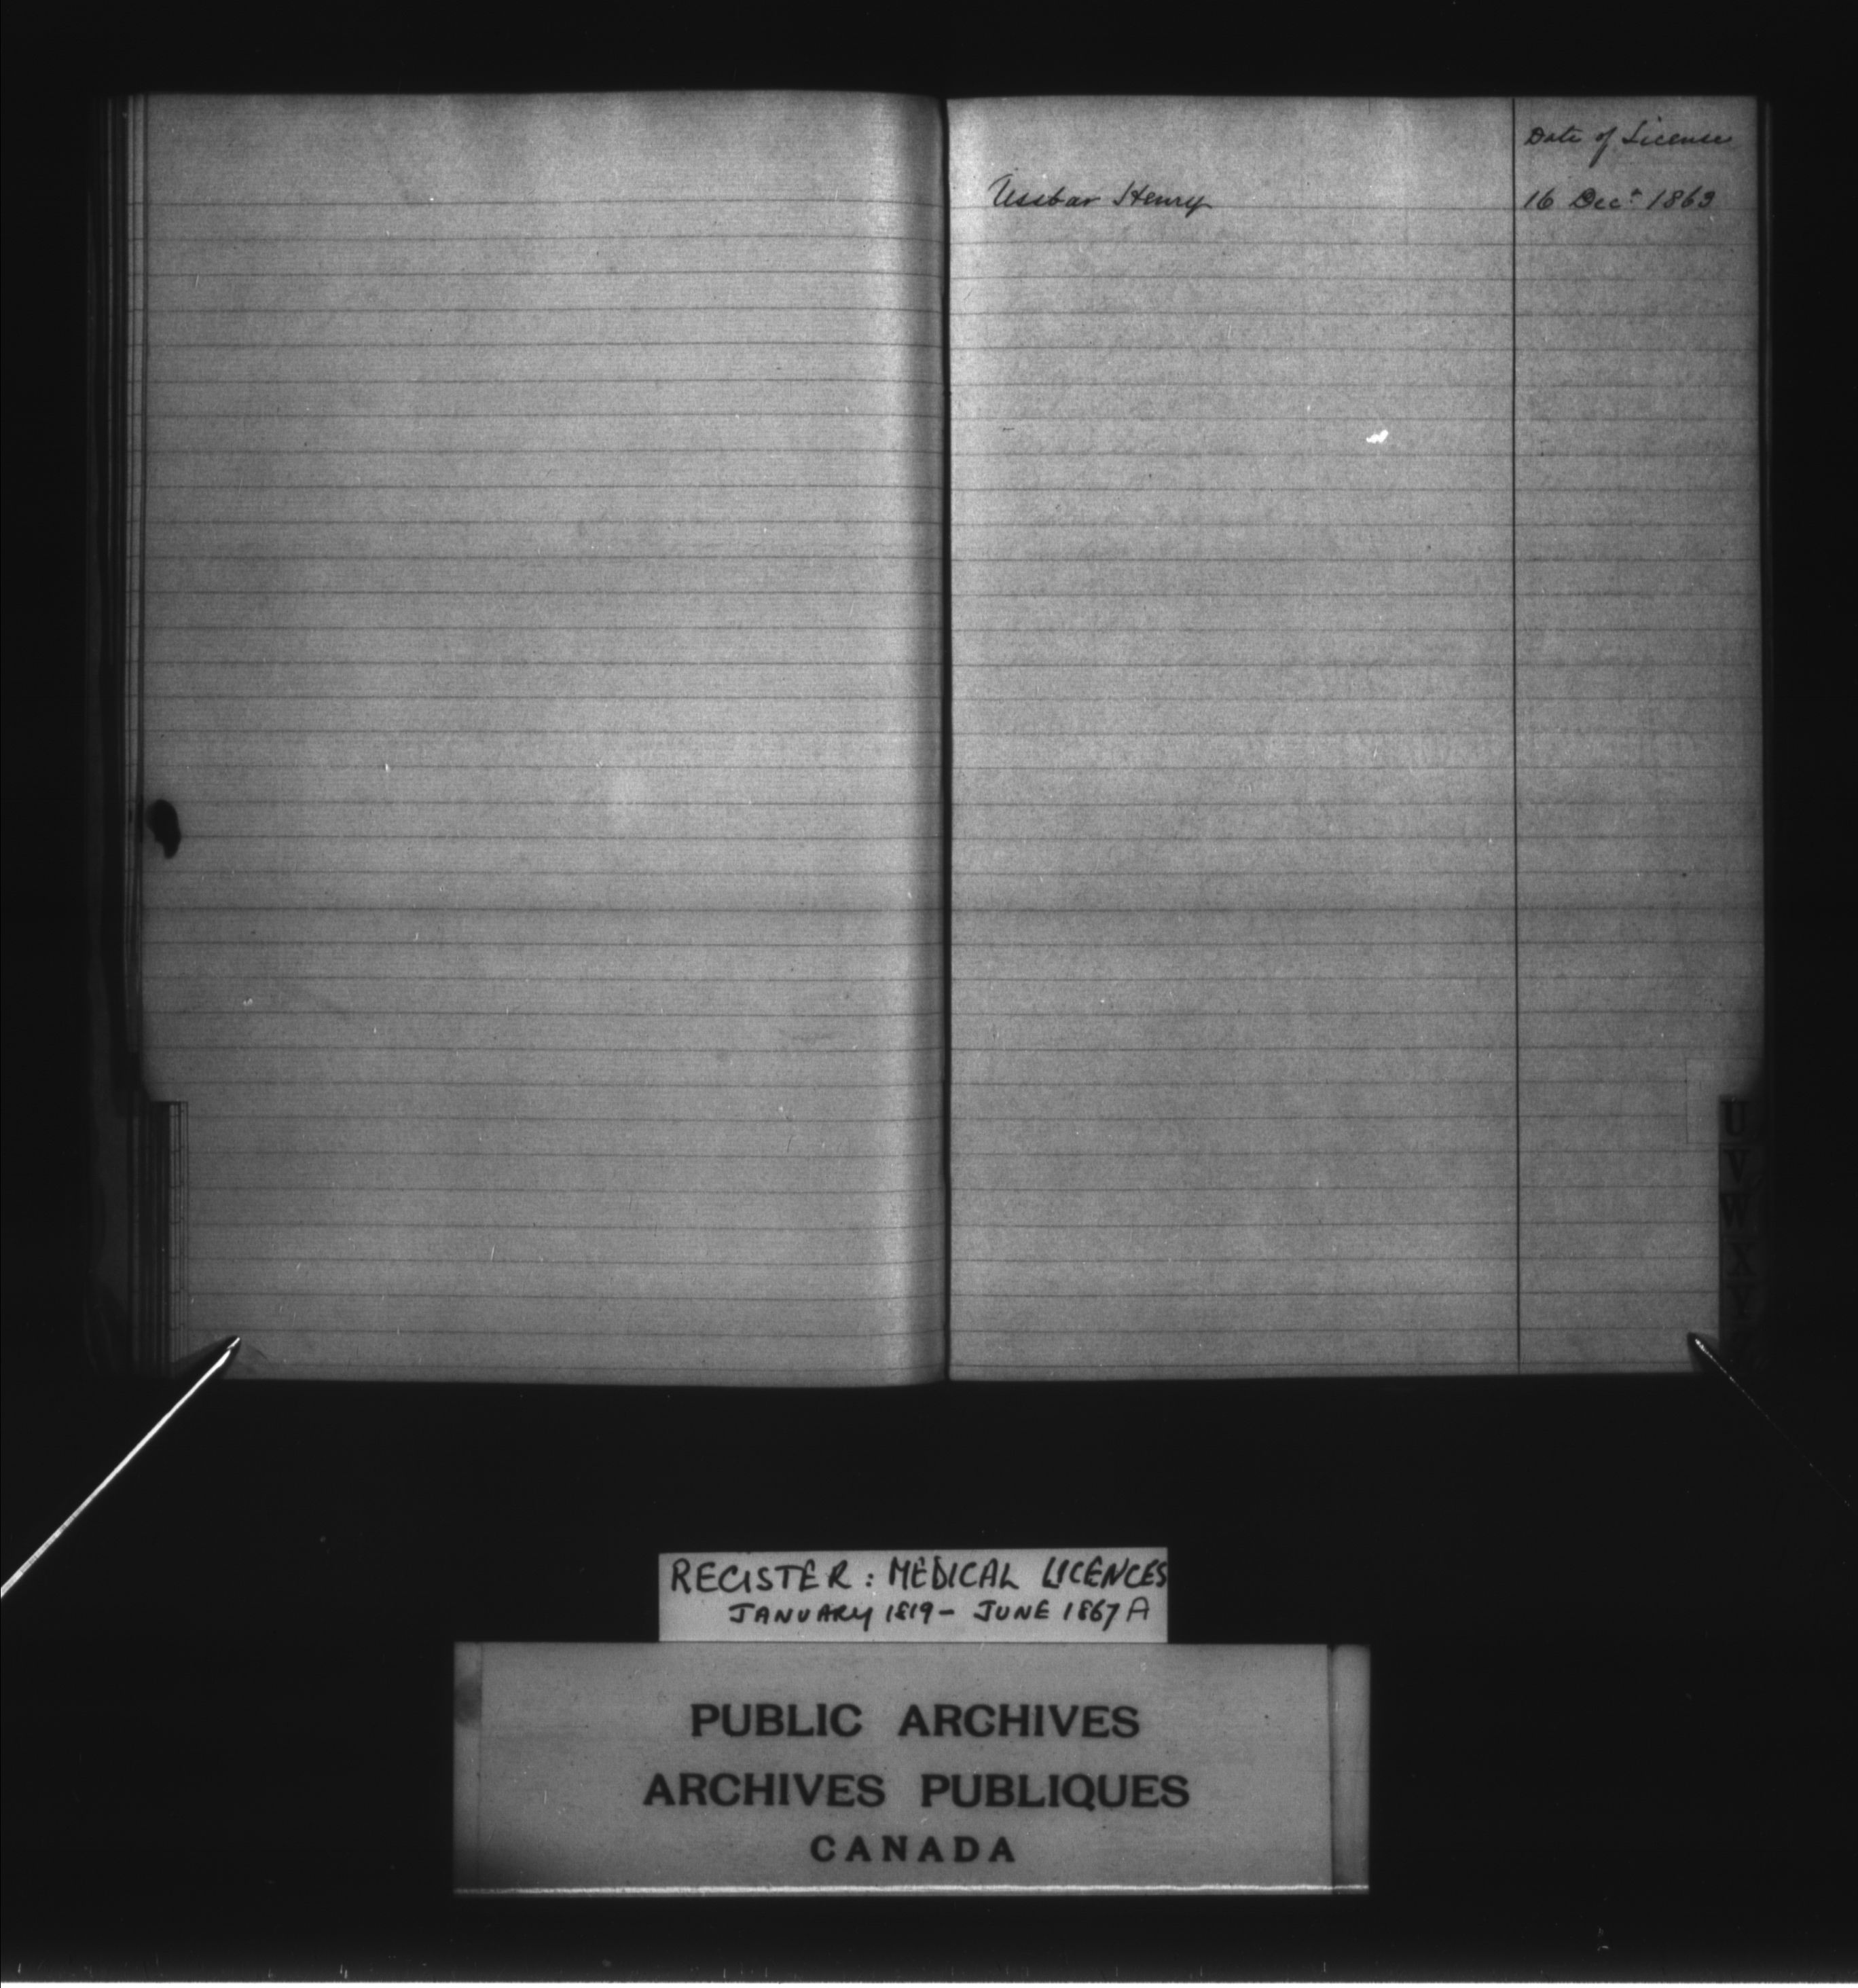 Date of License
Ussbar Henry 16 Decr 1863
U
V
W
X
Y
REGISTER: MEDICAL LICENCES
JANUARY 1819 - JUNE 1867 A
PUBLIC ARCHIVES
ARCHIVES PUBLIQUES
CANADA